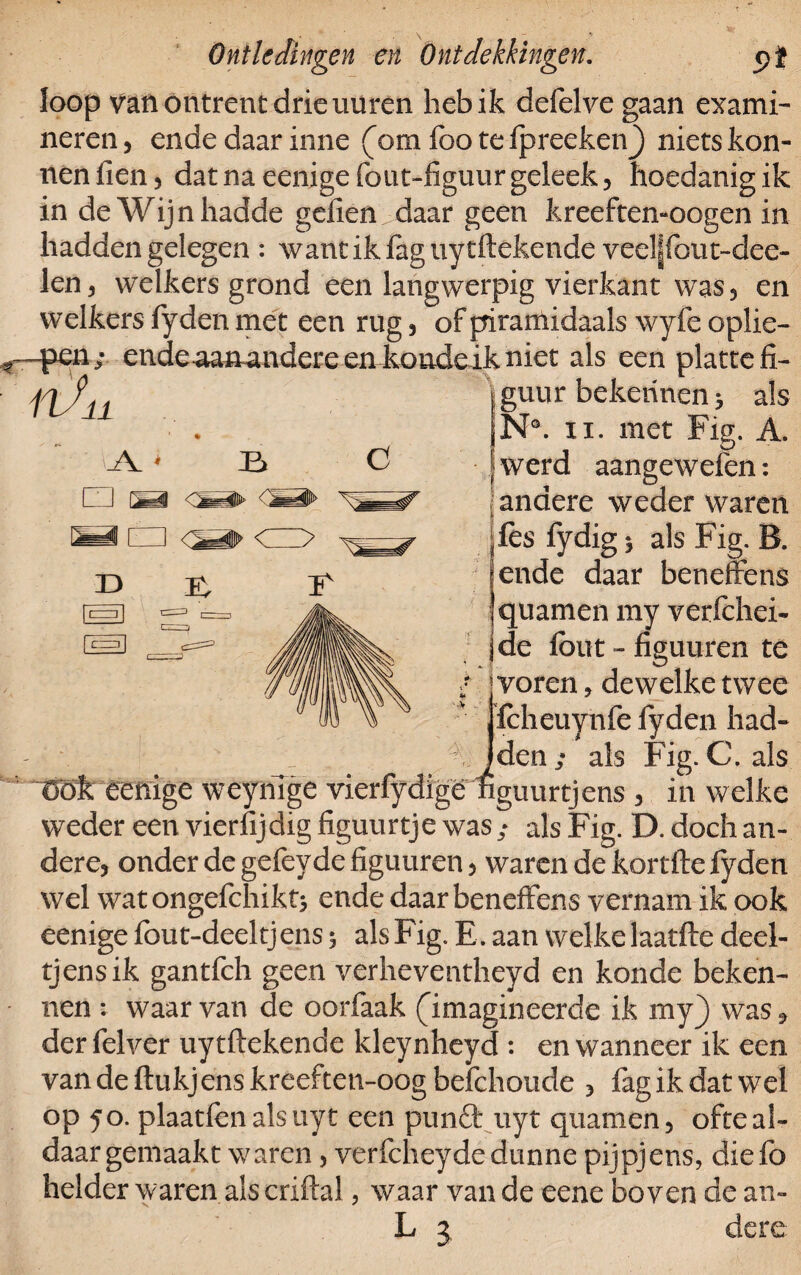 Ontledingen en Ontdekkingen. 91
loop van ontrent drie uuren heb ik deſelve gaan exami-
neren, ende daar inne (om ſoo te ſpreeken) niets kon-
nen ſien, dat na eenige ſout-figuur geleek, hoedanig ik
in de Wijn hadde geſien daar geen kreeften-oogen in
hadden gelegen : want ik ſag uytſtekende veel ſout-dee-
len, welkers grond een langwerpig vierkant was, en
welkers ſyden met een rug, of piramidaals wyſe oplie-
pen; ende aan andere en konde ik niet als een platte fi-
guur bekennen; als
N°. 11. met Fig. A.
werd aangeweſen:
andere weder waren
ſes ſydig; als Fig. B.
ende daar beneffens
quamen my verſchei-
de ſout-figuuren te
voren, dewelke twee
ſcheuynſe ſyden had-
den; als Fig. C. als
N°11
A B C
D E F
ook eenige weynige vierſydige figuurtjens, in welke
weder een vierſijdig figuurtje was; als Fig. D. doch an-
dere, onder de geſeyde figuuren, waren de kortſte ſyden
wel wat ongeſchikt; ende daar beneffens vernam ik ook
eenige ſout-deeltjens; als Fig. E. aan welke laatſte deel-
tjens ik gantſch geen verheventheyd en konde beken-
nen : waar van de oorſaak (imagineerde ik my) was,
der ſelver uytſtekende kleynheyd : en wanneer ik een
van de ſtukjens kreeften-oog beſchoude, ſag ik dat wel
op 50. plaatſen als uyt een punct uyt quamen, ofte al-
daar gemaakt waren, verſcheyde dunne pijpjens, die ſo
helder waren als criſtal, waar van de eene boven de an-
L 3 dere